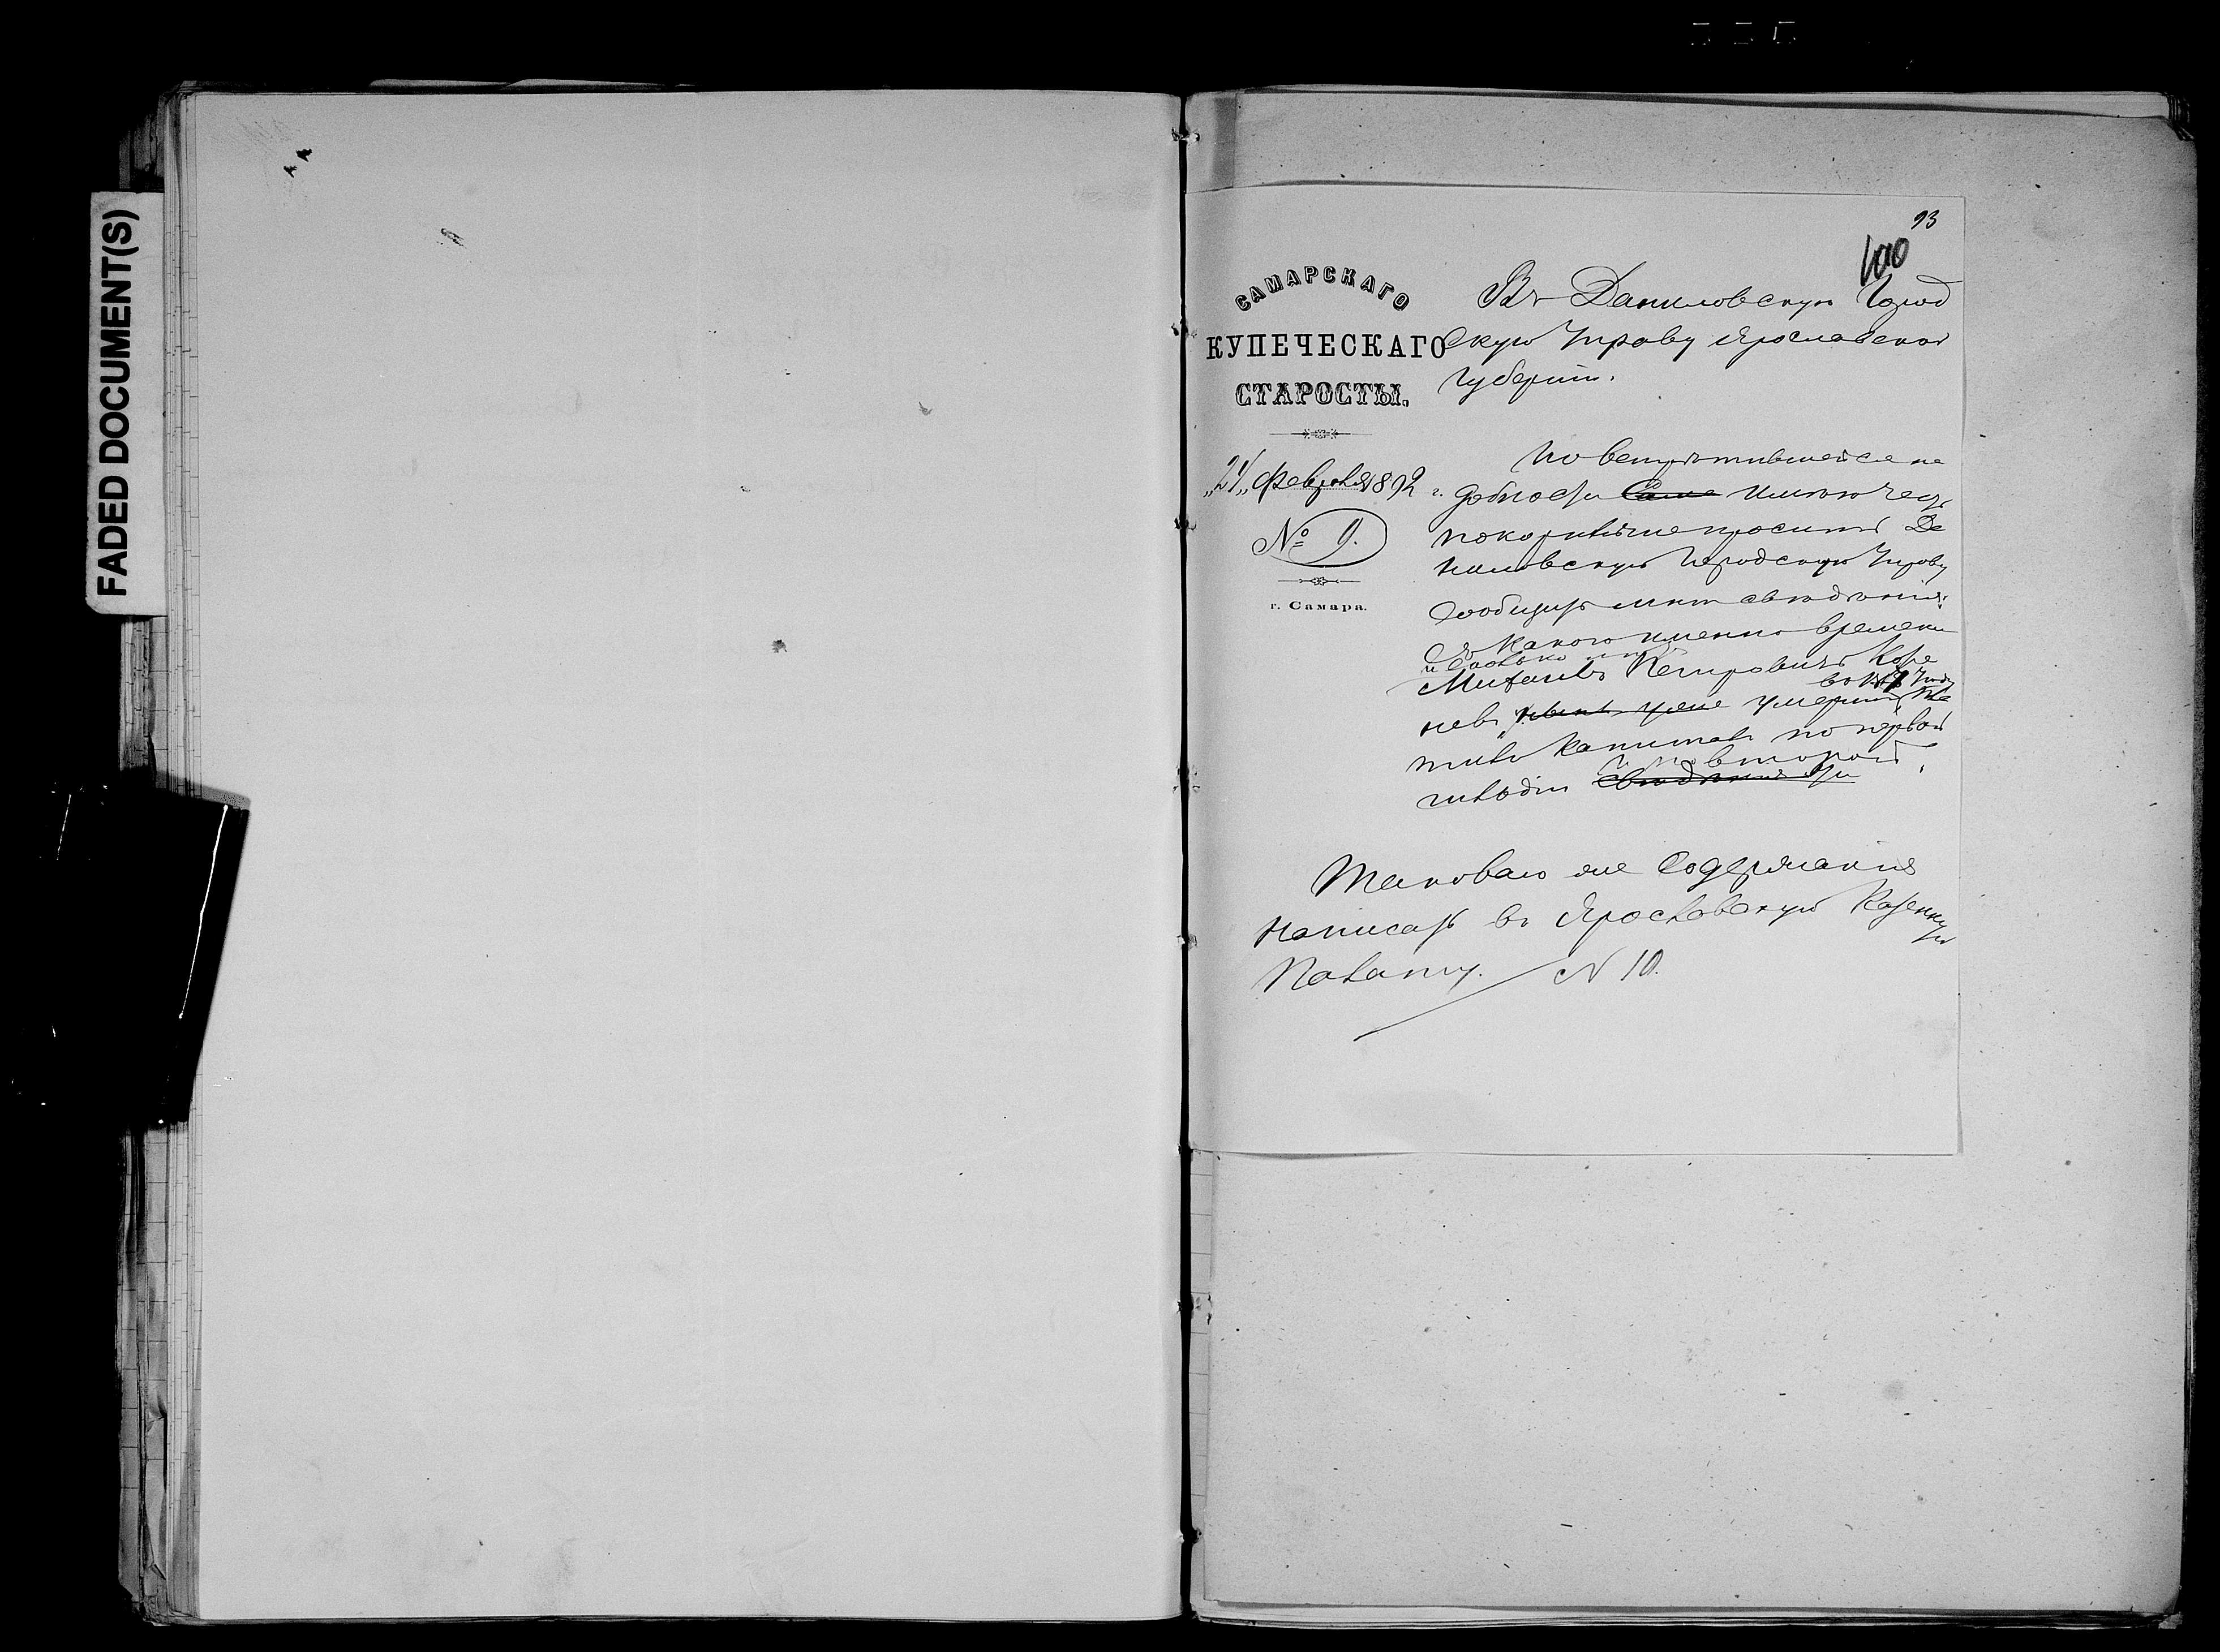 FADED DOCUMENT(S)
93
100
САМАРСКАГО
КУПЕЧЕСКАГО
СТАРОСТЫ.
„24„ Февраля 1892 г.
№ 9.
г. Самара.
Въ Даниловскую Город
скую Управу Ярославской
Губерніи.
По встрѣтившейся на
добности имѣю честь
покорнѣйше просить Да
ниловскую Городскую Управу
сообщить мнѣ свѣдѣнія:
Съ какого именно времени
и сколько
Михаилъ Петровичъ Коре
невъ умершій
тилъ капиталъ по первой
и по второй
гильдіи
Таковаго же содержанія
написать въ Ярославскую Казенную
Палату. N 10.